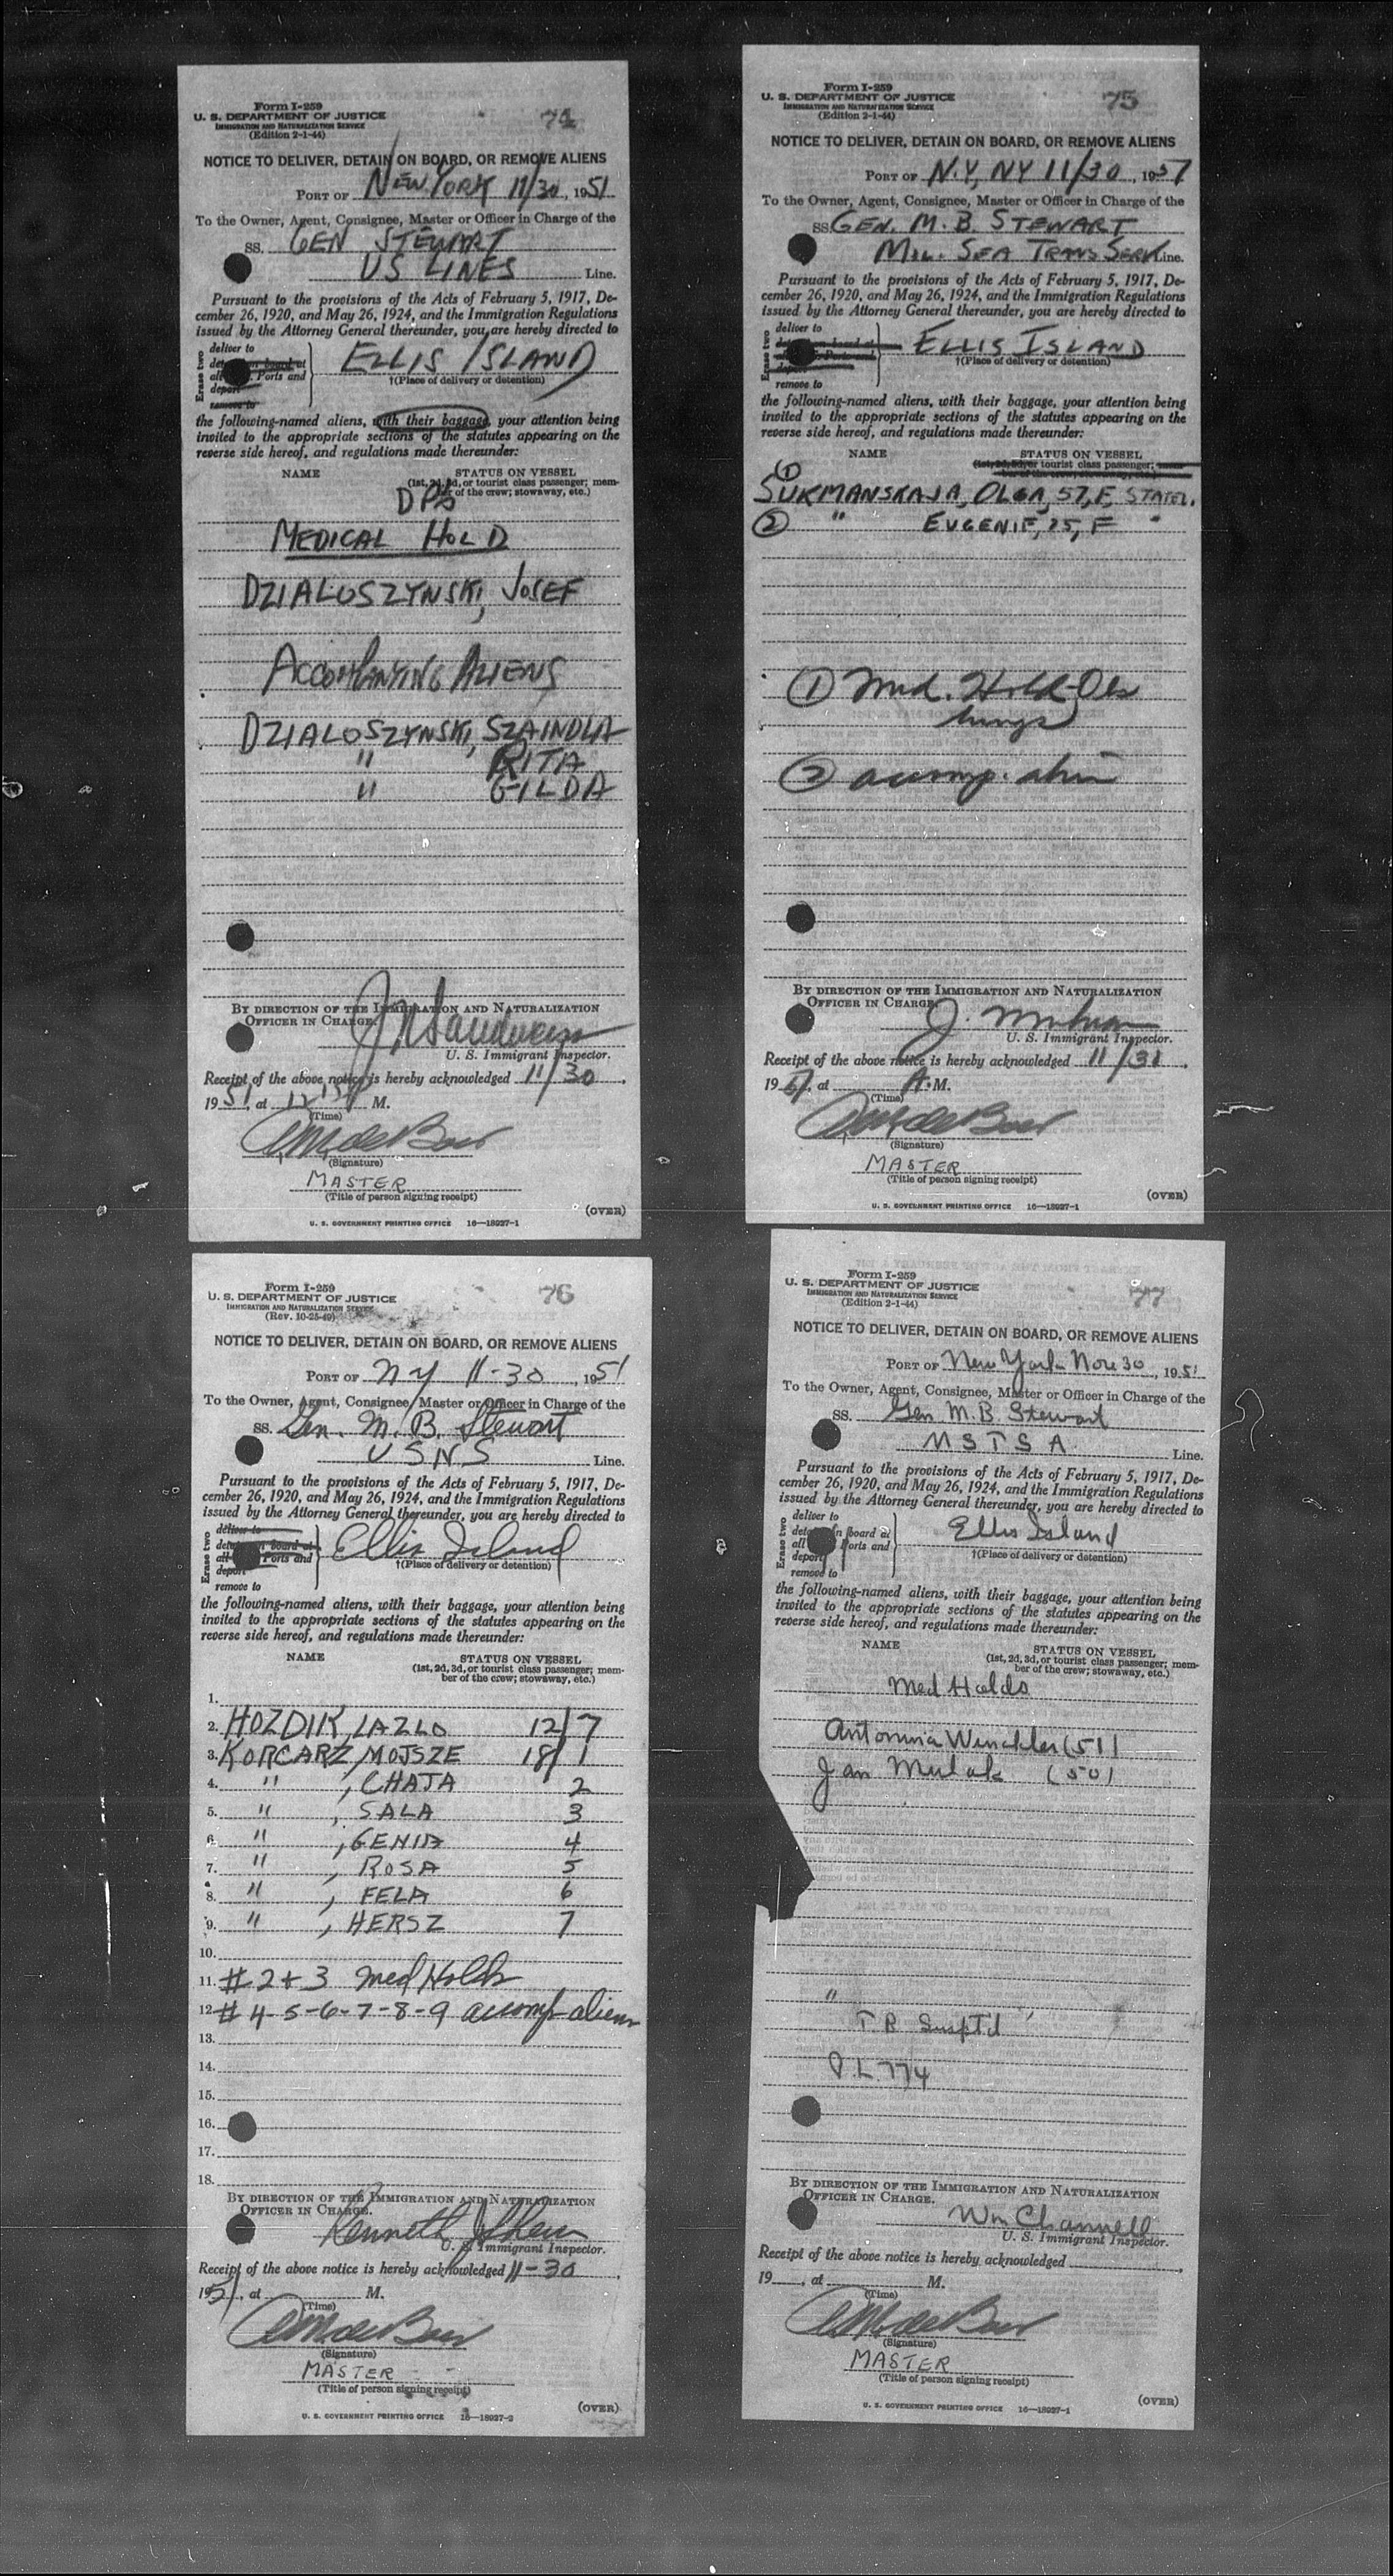 Form I-259
74
U. S. DEPARTMENT OF JUSTICE
IMMIGRATION AND NATURALIZATION SERVICE
(Edition 2-1-44)
NOTICE TO DELIVER, DETAIN ON BOARD, OR REMOVE ALIENS
PORT OF NEW YORK 11/30, 1951
To the Owner, Agent, Consignee, Master or Officer in Charge of the
SS. GEN STEWART
US LINES Line.
Pursuant to the provisions of the Acts of February 5, 1917, De-
cember 26, 1920, and May 26, 1924, and the Immigration Regulations
issued by the Attorney General thereunder, you are hereby directed to
Erase two
deliver to
on board at
all Ports and
deport
remove to
ELLIS ISLAND
†(Place of delivery or detention)
the following-named aliens, with their baggage, your attention being
invited to the appropriate sections of the statutes appearing on the
reverse side hereof, and regulations made thereunder:
NAME STATUS ON VESSEL
(1st, 2d, 3d, or tourist class passenger; mem-
ber of the crew; stowaway, etc.)
DPs
MEDICAL HOLD
DZIALOSZYNSKI, JOSEF
ACCOMPANYING ALIENS
DZIALOSZYNSKI, SZAINDLA
" RITA
" GILDA
BY DIRECTION OF THE IMMIGRATION AND NATURALIZATION
OFFICER IN CHARGE.
U. S. Immigrant Inspector.
Receipt of the above notice is hereby acknowledged 11/30,
1951, at M.
(Time)
(Signature)
MASTER
(Title of person signing receipt)
(OVER)
U. S. GOVERNMENT PRINTING OFFICE 16—18927-1
Form I-259
75
U. S. DEPARTMENT OF JUSTICE
IMMIGRATION AND NATURALIZATION SERVICE
(Edition 2-1-44)
NOTICE TO DELIVER, DETAIN ON BOARD, OR REMOVE ALIENS
PORT OF N.Y, NY 11/30, 1951
To the Owner, Agent, Consignee, Master or Officer in Charge of the
SS. GEN. M. B. STEWART
MIL. SEA TRANS SERV Line.
Pursuant to the provisions of the Acts of February 5, 1917, De-
cember 26, 1920, and May 26, 1924, and the Immigration Regulations
issued by the Attorney General thereunder, you are hereby directed to
Erase two
deliver to
on board at
Ports and
deport
remove to
ELLIS ISLAND
†(Place of delivery or detention)
the following-named aliens, with their baggage, your attention being
invited to the appropriate sections of the statutes appearing on the
reverse side hereof, and regulations made thereunder:
NAME STATUS ON VESSEL
(1st, 2d, 3d, or tourist class passenger; mem-
ber of the crew; stowaway, etc.)
①
SUKMANSKAJA, OLGA, 57, F, STATEL.
② " EUGENIE, 25, F "
① Med. Hold-Obs
lungs
② accomp. alien
BY DIRECTION OF THE IMMIGRATION AND NATURALIZATION
OFFICER IN CHARGE.
U. S. Immigrant Inspector.
Receipt of the above notice is hereby acknowledged 11/31,
1951, at A.M.
(Time)
(Signature)
MASTER
(Title of person signing receipt)
(OVER)
U. S. GOVERNMENT PRINTING OFFICE 16—18927-1
Form I-259
76
U. S. DEPARTMENT OF JUSTICE
IMMIGRATION AND NATURALIZATION SERVICE
(Rev. 10-25-49)
NOTICE TO DELIVER, DETAIN ON BOARD, OR REMOVE ALIENS
PORT OF NY 11-30, 1951
To the Owner, Agent, Consignee, Master or Officer in Charge of the
SS. Gen. M. B. Stewart
USNS Line.
Pursuant to the provisions of the Acts of February 5, 1917, De-
cember 26, 1920, and May 26, 1924, and the Immigration Regulations
issued by the Attorney General thereunder, you are hereby directed to
Erase two
deliver to
on board at
all Ports and
deport
remove to
Ellis Island
†(Place of delivery or detention)
the following-named aliens, with their baggage, your attention being
invited to the appropriate sections of the statutes appearing on the
reverse side hereof, and regulations made thereunder:
NAME STATUS ON VESSEL
(1st, 2d, 3d, or tourist class passenger; mem-
ber of the crew; stowaway, etc.)
1.
2. HOZDIK, LAZLO 12/7
3. KORCARZ, MOJSZE 18/1
4. " , CHAJA 2
5. " , SALA 3
6. " , GENIA 4
7. " , ROSA 5
8. " , FELA 6
9. " , HERSZ 7
10.
11. # 2 + 3 Med Holds
12. # 4-5-6-7-8-9 accomp aliens
13.
14.
15.
16.
17.
18.
BY DIRECTION OF THE IMMIGRATION AND NATURALIZATION
OFFICER IN CHARGE.
Kenneth
U. S. Immigrant Inspector.
Receipt of the above notice is hereby acknowledged 11-30,
1951, at M.
(Time)
(Signature)
MASTER
(Title of person signing receipt)
(OVER)
U. S. GOVERNMENT PRINTING OFFICE 16—18927-2
Form I-259
77
U. S. DEPARTMENT OF JUSTICE
IMMIGRATION AND NATURALIZATION SERVICE
(Edition 2-1-44)
NOTICE TO DELIVER, DETAIN ON BOARD, OR REMOVE ALIENS
PORT OF New York Nov 30, 1951
To the Owner, Agent, Consignee, Master or Officer in Charge of the
SS. Gen M.B Stewart
MSTSA Line.
Pursuant to the provisions of the Acts of February 5, 1917, De-
cember 26, 1920, and May 26, 1924, and the Immigration Regulations
issued by the Attorney General thereunder, you are hereby directed to
Erase two
deliver to
on board at
all Ports and
deport
remove to
Ellis Island
†(Place of delivery or detention)
the following-named aliens, with their baggage, your attention being
invited to the appropriate sections of the statutes appearing on the
reverse side hereof, and regulations made thereunder:
NAME STATUS ON VESSEL
(1st, 2d, 3d, or tourist class passenger; mem-
ber of the crew; stowaway, etc.)
Med Holds
Antonina Winckler (51)
Jan Mulak (50)
"
T.B Suspt'd
P.L. 774
BY DIRECTION OF THE IMMIGRATION AND NATURALIZATION
OFFICER IN CHARGE.
Wm Channell
U. S. Immigrant Inspector.
Receipt of the above notice is hereby acknowledged ,
19 , at M.
(Time)
(Signature)
MASTER
(Title of person signing receipt)
(OVER)
U. S. GOVERNMENT PRINTING OFFICE 16—18927-1